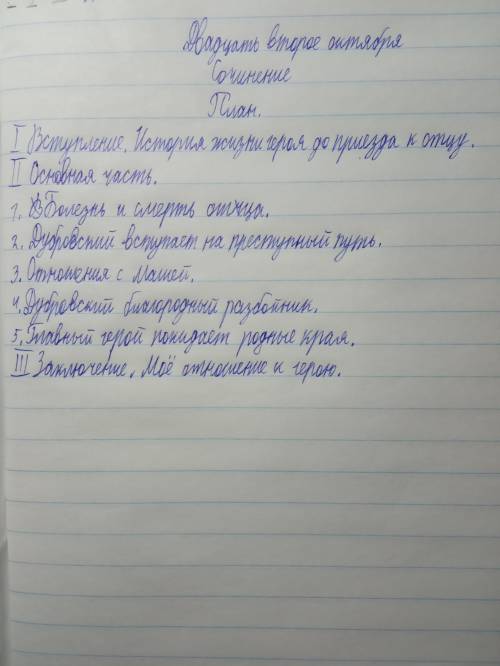 Двадцать второе октября
Сочинение
План.
I Вступление. История жизни героя до приезда к отцу.
II Основная часть.
1. Болезнь и смерть отчца.
2. Дубровский вступает на преступный путь.
3. Отношения с Машей.
4. Дубровский благородный разбойник.
5. Главный герой покидает родные края.
III Заключение. Моё отношение к герою.